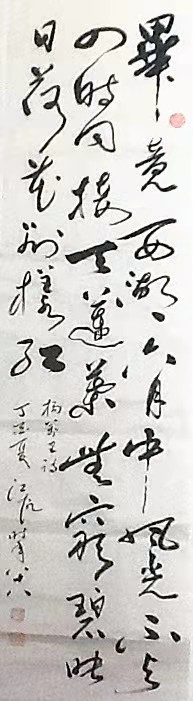 畢竟西湖六月中風光不与
四時同接天蓮葉無窮碧映
日荷花別樣紅
楊萬里詩
丁亥夏